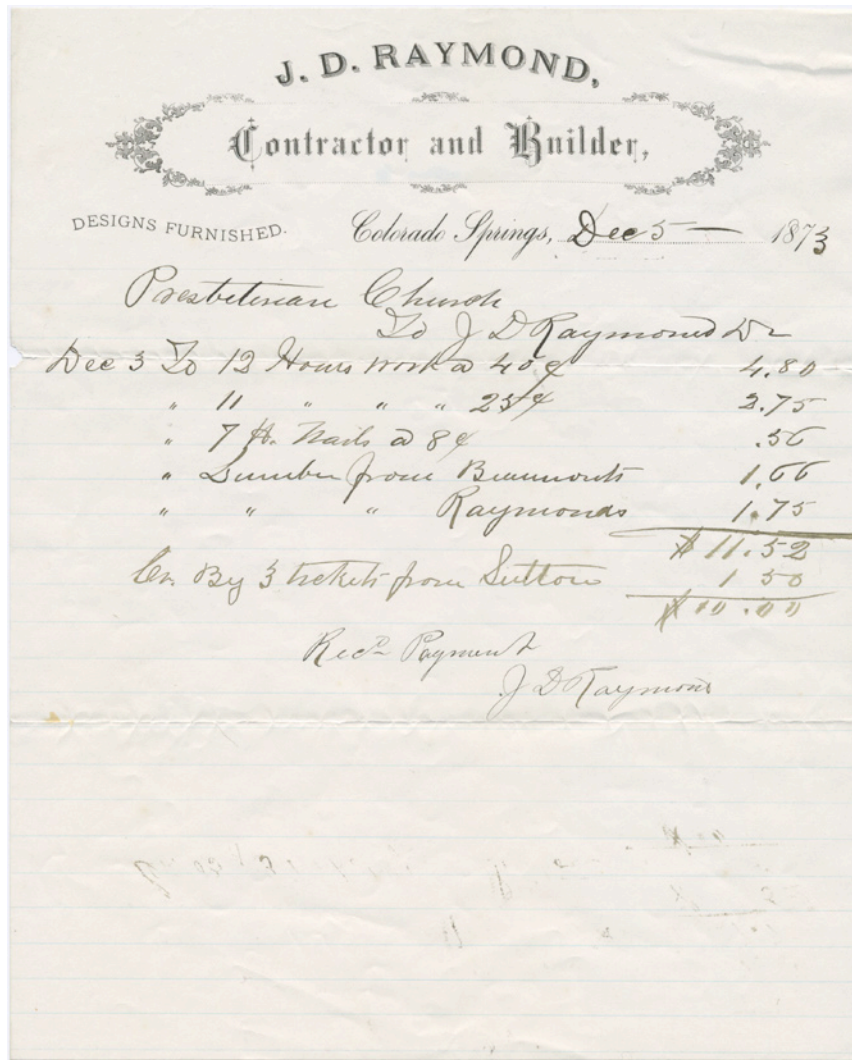 J. D. RAYMOND,
Contractor and Builder,
DESIGNS FURNISHED. Colorado Springs, Dec 5 — 1873
Presbeterian Church
To J D Raymond Dr
Dec 3 To 12 Hours work @ 40 ¢ 4.80
" 11 " " " 25 ¢ 2.75
" 7 lb. Nails @ 8 ¢ .56
" Lumber from Beaumonts 1.66
" " " Raymonds 1.75
$ 11.52
Cr. By 3 tickets from Sutton 1 50
$ 10.00
Recd Payment
J D Raymond